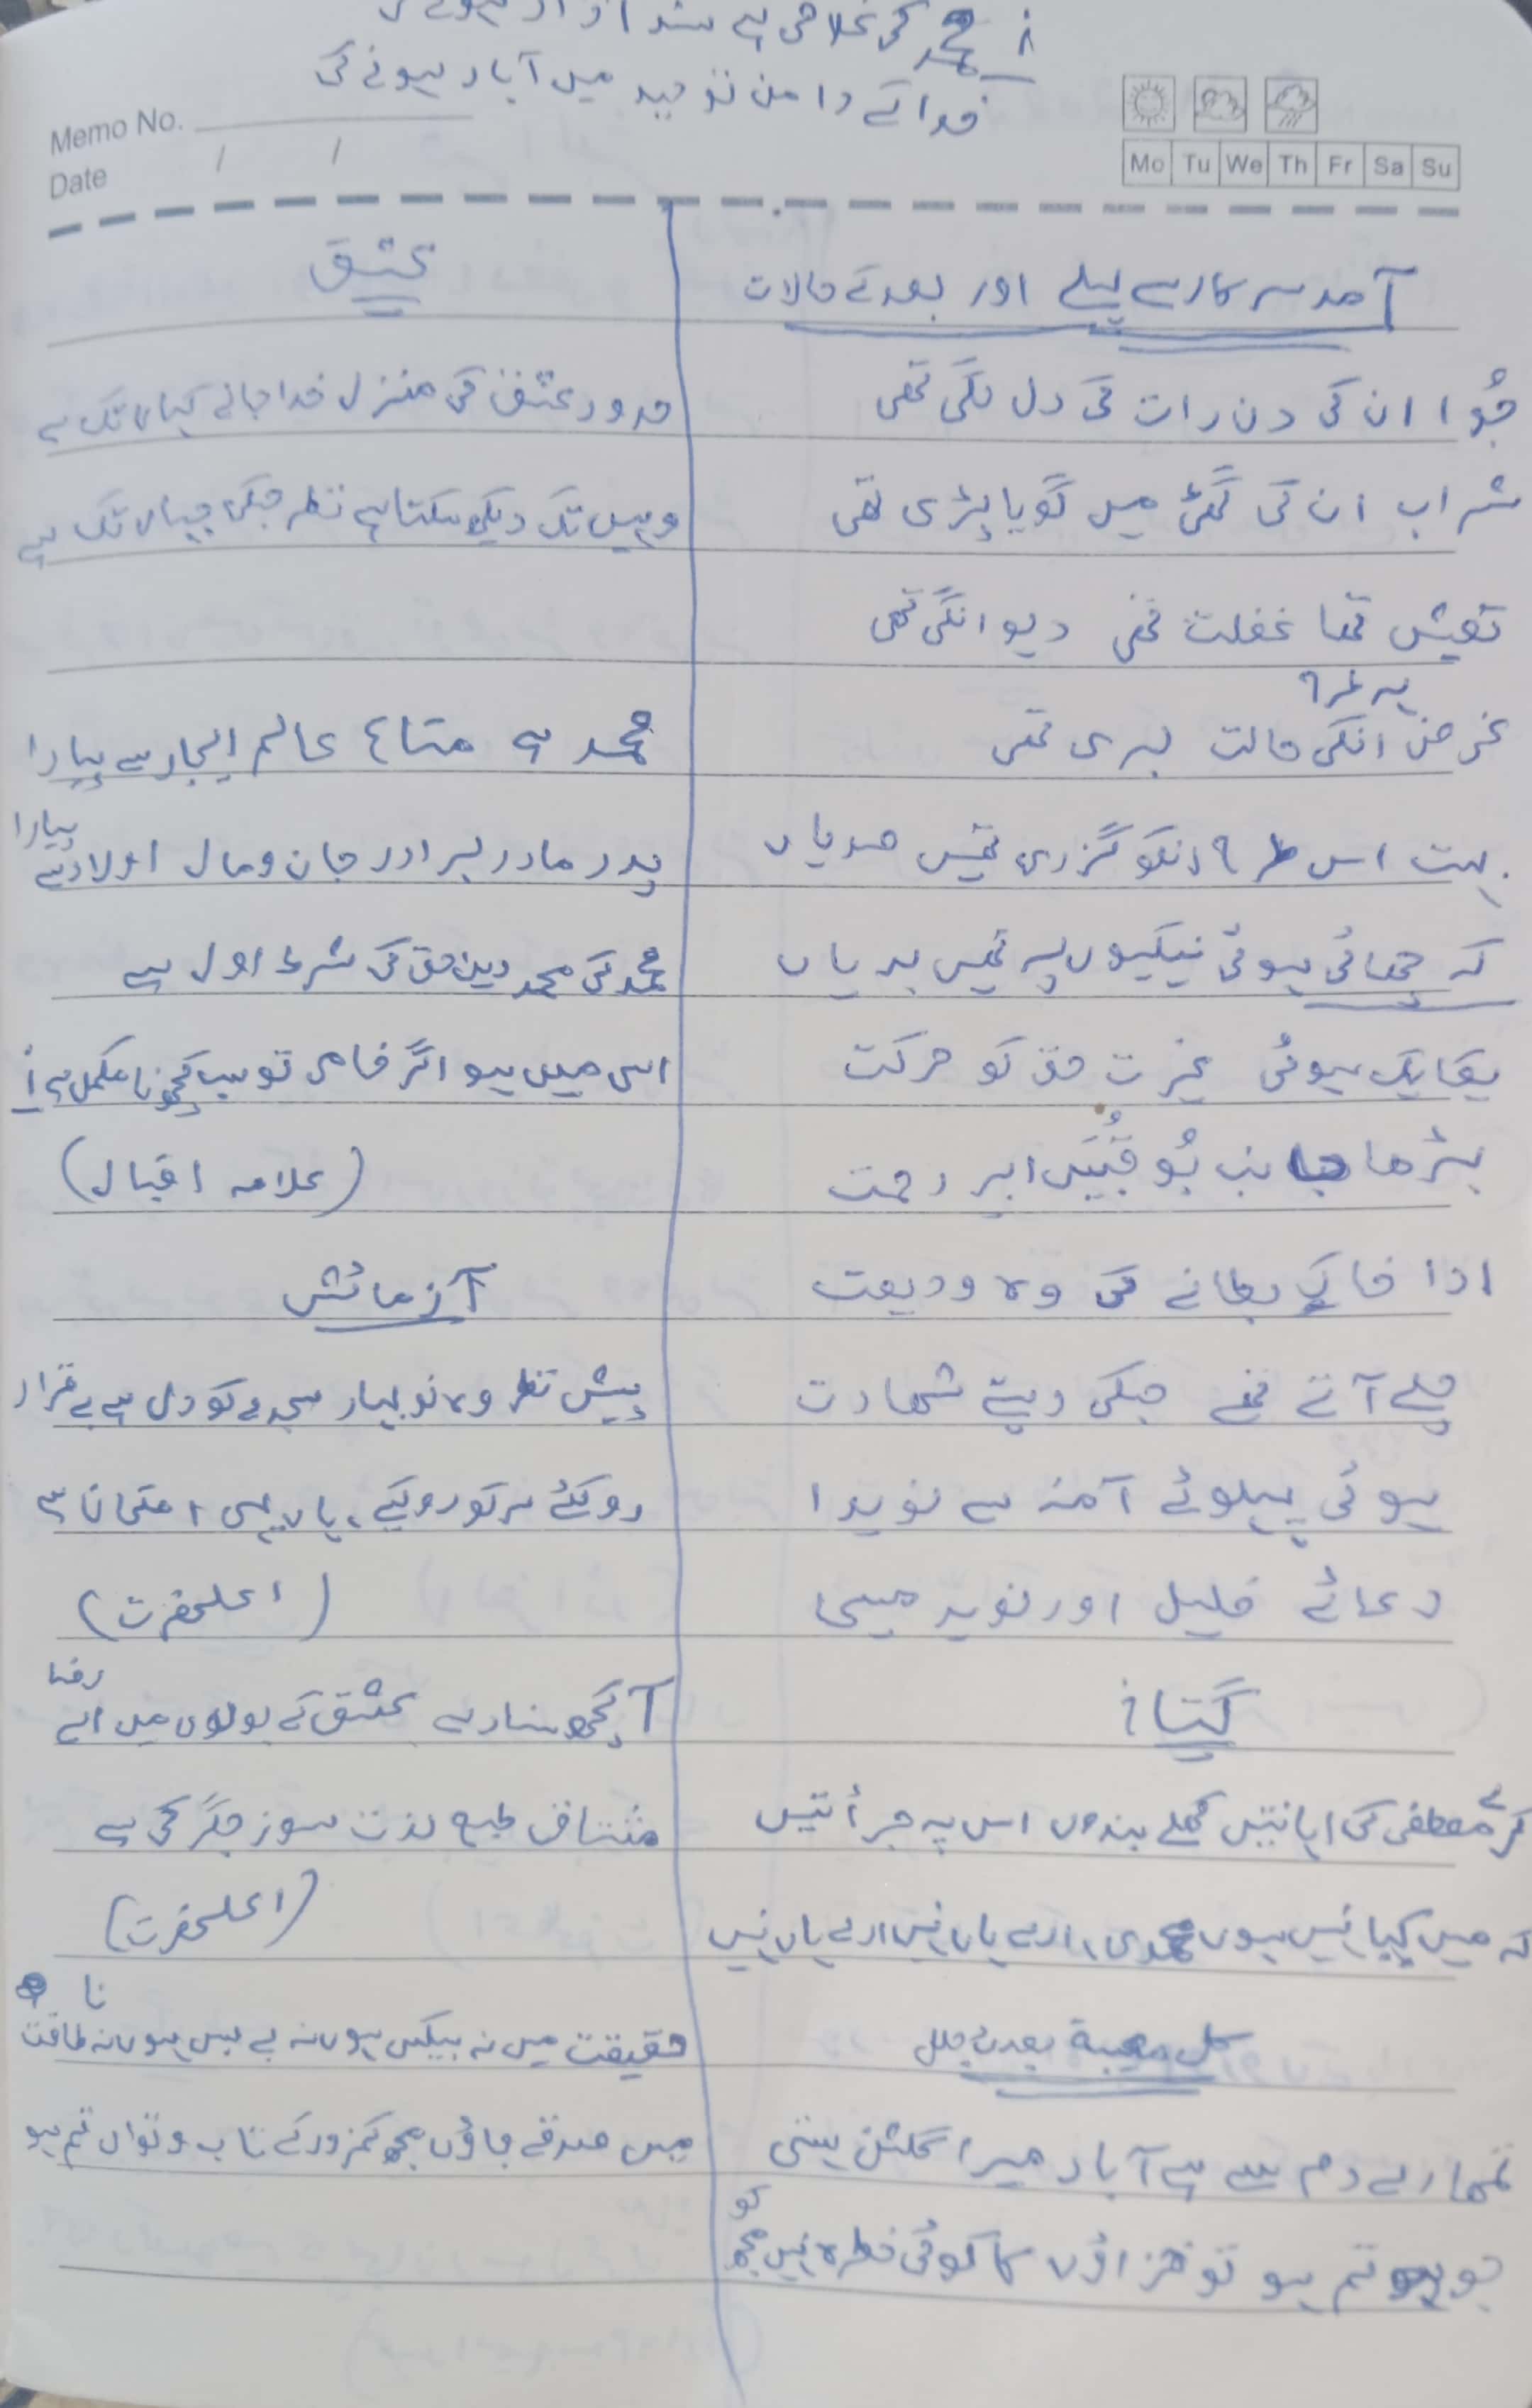 أ محمد کی غلامی ہے سند آزاد ہونے کی
خدا کے دامن توحید میں آباد ہونے کی
Memo No.
Date / /
Mo Tu We Th Fr Sa Su
آمد سرکار سے پہلے اور بعد کے حالات
جُوا ان کی دن رات کی دل لگی تھی
شراب ان کی گھٹی میں گویا پڑی تھی
تعیش تھا غفلت تھی دیوانگی تھی
غرض انکی حالت بری تھی
ہر طرح
بہت اس طرح انکو گزری تھیں صدیاں
کہ چھائی ہوئی نیکیوں پہ تھیں بدیاں
یکایک ہوئی غیرت حق کو حرکت
بڑھا جانب بُو قُبَیس ابر رحمت
ادا خاک بطحا نے کی وہ ودیعت
چلے آتے تھے جسکی دیتے شھادت
ہوئی پہلوئے آمنہ سے ہویدا
دعائے خلیل اور نوید مسیحا
گستاخ
کرے مصطفی کی اہانتیں کھلے بندوں اس پہ جرأتیں
کہ میں کیا نہیں ہوں محمدی، ارے ہاں نہیں ارے ہاں نہیں
کل مصیبة بعدک جلل
تمھارے دم سے ہے آباد میرا گلشن ہستی
جو تم ہو تو خزاؤں کا کوئی خطرہ نہیں مجھ کو
عشق
حدود عشق کی منزل خدا جانے کہاں تک ہے
وہیں تک دیکھ سکتا ہے نظر جسکی جہاں تک ہے
محمد ہے متاع عالم ایجاد سے پیارا
پدر مادر برادر جان و مال اولاد سے پیارا
محمد کی محمد دین حق کی شرط اول ہے
اسی میں ہو اگر خامی تو سب کچھ نامکمل ہے أ
(علامہ اقبال)
آزمائش
پیش نظر وہ نو بہار سجدے کو دل ہے بے قرار
روکئے سر کو روکیے، ہاں یہی امتحان ہے
(اعلحضرت)
آ کچھ سنا دے عشق کے بولوں میں اے رضا
مشتاق طبع لذت سوز جگر کی ہے
(اعلحضرت)
حقیقت میں نہ بیکس ہوں نہ بے بس ہوں نہ نا طاقت
میں صدقے جاؤں مجھ کمزور کے تاب و تواں تم ہو